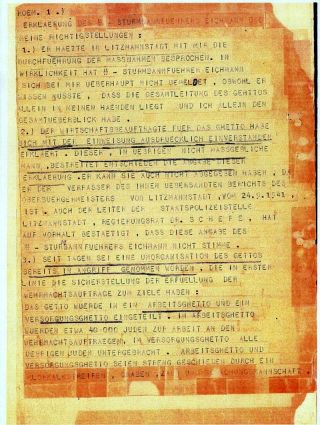 ROEM. 1.)
ERKLAERUNG DES SS- STURMBANNFUEHRERS EICHMANN
MEINE RICHTIGSTELLUNGEN:
1.) ER HAETTE IN LITZMANNSTADT MIT MIR DIE
DURCHFUEHRUNG DER MASSNAHMEN BESPROCHEN. IN
WIRKLICHKEIT HAT SS- STURMBANNFUEHRER EICHMANN
SICH BEI MIR UEBERHAUPT NICHT GEMELDET, OBWOHL ER
WISSEN MUSSTE, DASS DIE GESAMTLEITUNG DES GETTOS
ALLEIN IN MEINEN HAENDEN LIEGT UND ICH ALLEIN DEN
GESAMTUEBERBLICK HABE.
2.) DER WIRTSCHAFTSBEAUFTRAGTE FUER DAS GHETTO HABE
SICH MIT DER EINWEISUNG AUSDRUECKLICH EINVERSTANDEN
ERKLAERT. DIESER, IM UEBRIGEN NICHT MASSGEBLICHE
MANN, BESTREITET ENTSCHIEDEN DIE ANGABE DIESER
ERKLAERUNG. ER KANN SIE AUCH NICHT ABGEGEBEN HABEN, DA
ER DER VERFASSER DES IHNEN UEBERSANDTEN BERICHTS DES
OBERBUERGERMEISTERS VON LITZMANNSTADT, VOM 24.9.1941
IST. AUCH DER LEITER DER STAATSPOLIZEISTELLE
LITZMANNSTADT, REGIERUNGSRAT DR. SCHEFE, HAT
AUF VORHALT BESTAETIGT, DASS DIESE ANGABE DES
SS- STURMBANNFUEHRERS EICHMANN NICHT STIMME.
3.) SEIT TAGEN SEI EINE UMORGANISATION DES GETTOS
BEREITS IN ANGRIFF GENOMMEN WORDEN, DIE IN ERSTER
LINIE DIE SICHERSTELLUNG DER ERFUELLUNG DER
WEHRMACHTSAUFTRAGE ZUM ZIELE HABEN:
DAS GETTO WUERDE IN EIN ARBEITSGHETTO UND EIN
VERSORGUNGSGHETTO EINGETEILT. IM ARBEITSGHETTO
WUERDEN ETWA 40 000 JUDEN ZUR ARBEIT AN DEN
WEHRMACHTSAUFTRAEGEN, IM VERSORGUNGSGHETTO ALLE
UEBRIGEN JUDEN UNTERGEBRACHT. ARBEITSGHETTO UND
VERSORGUNGSGHETTO SEIEN STRENG GESCHIEDEN DURCH EIN
GRABEN, UND